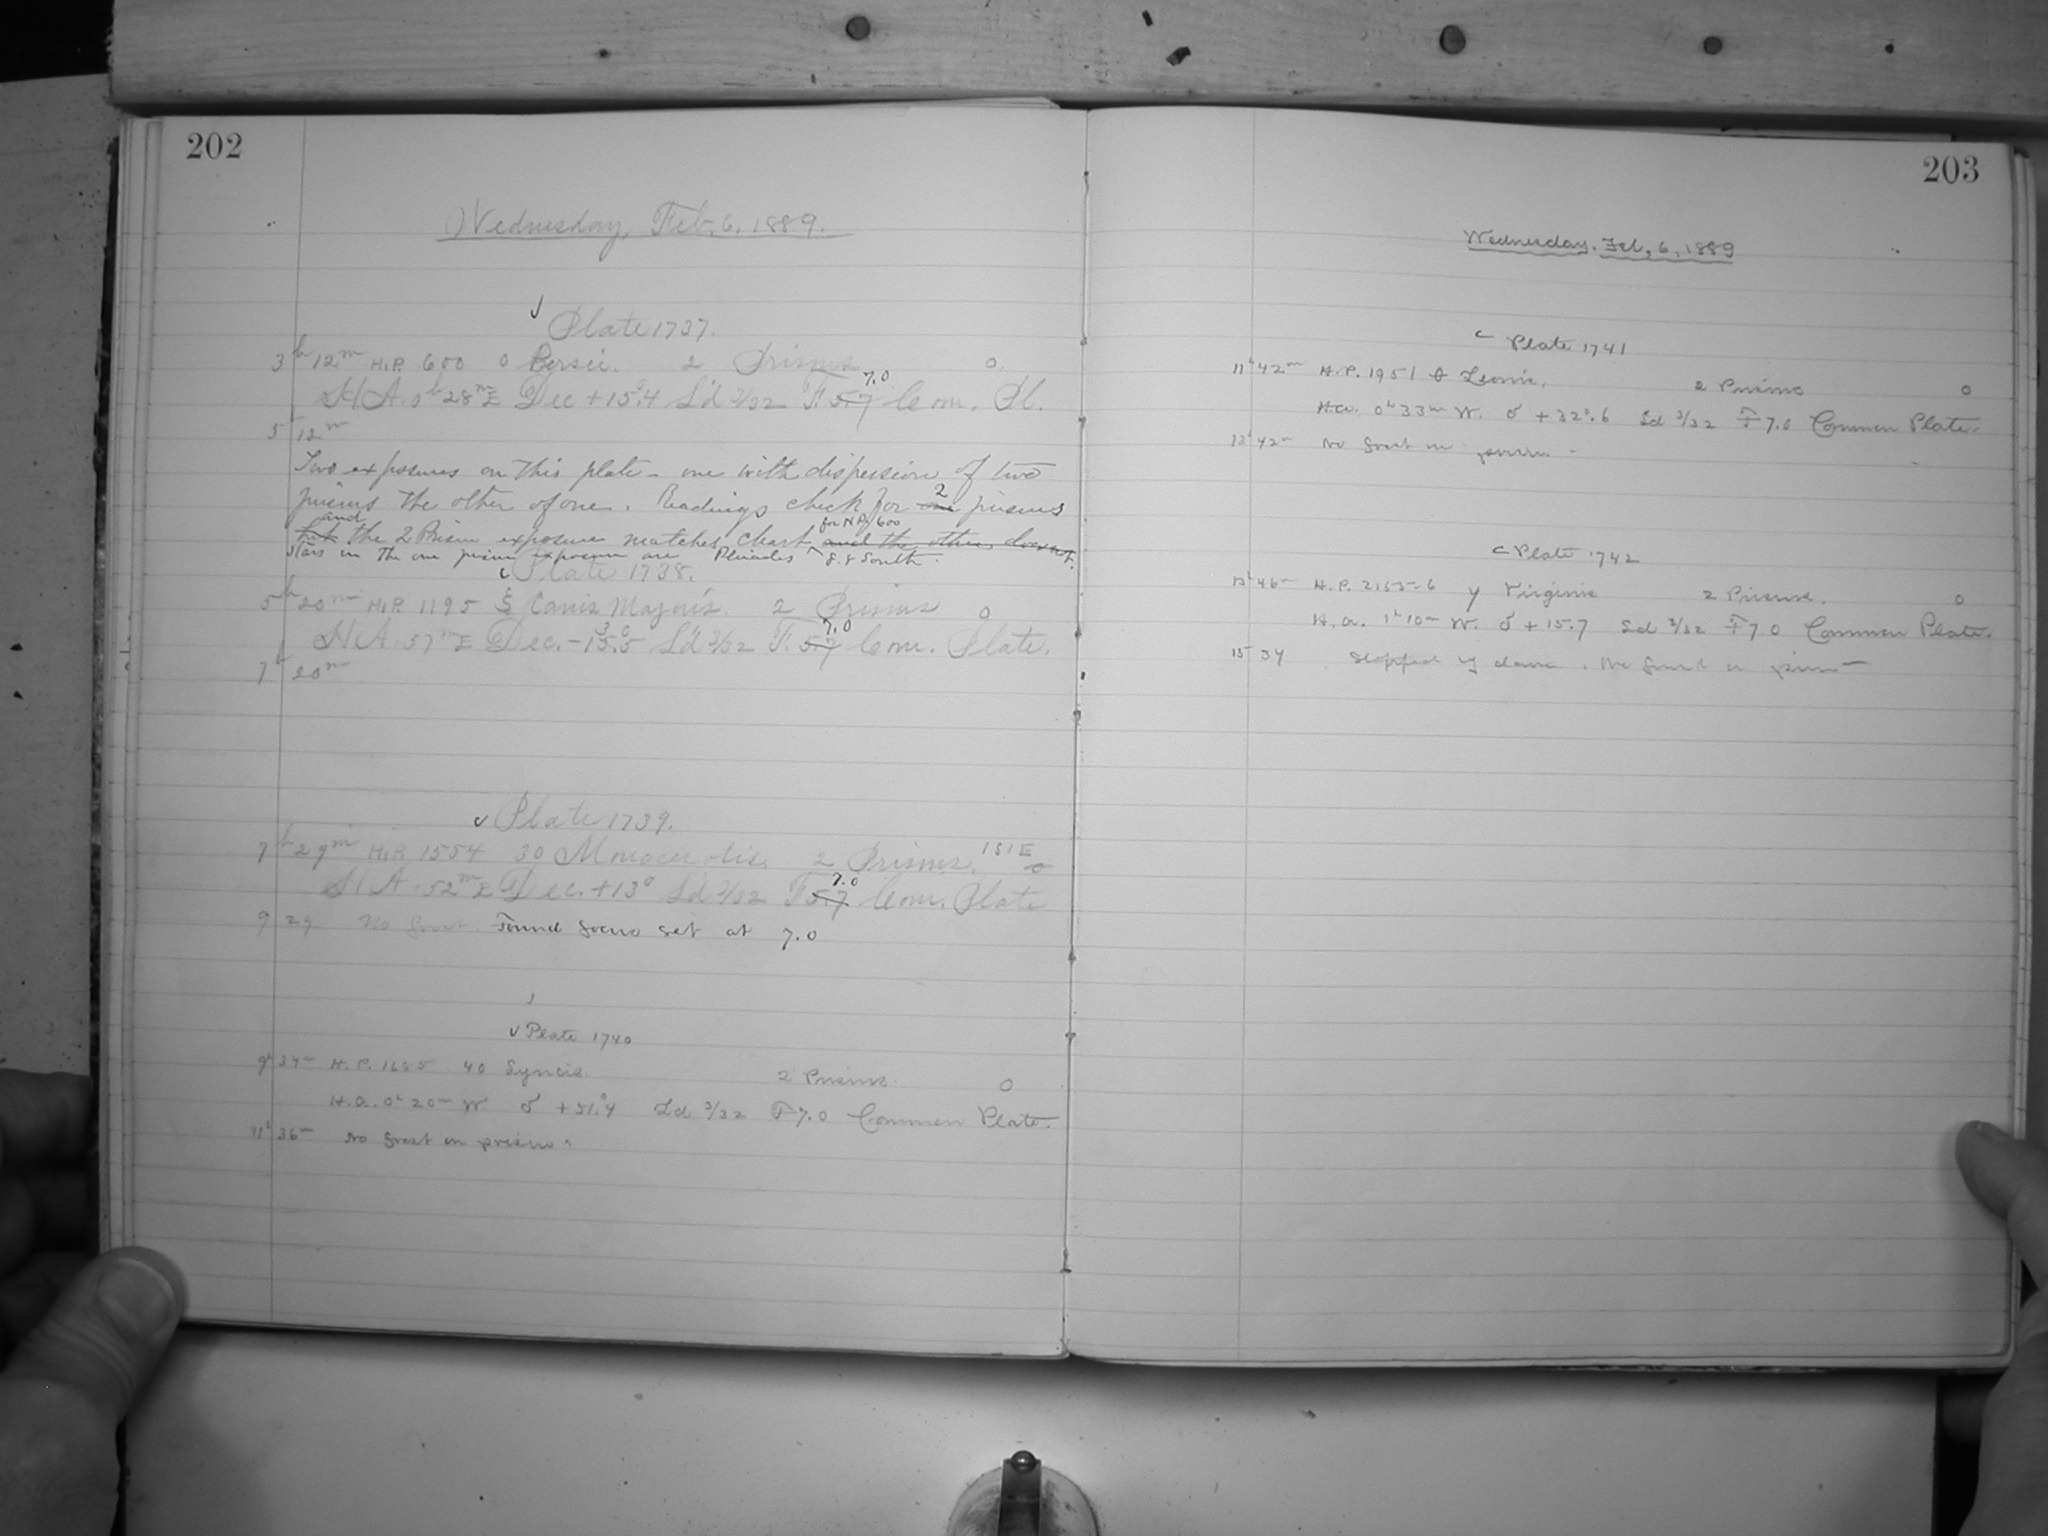 202
Wednesday, Feb. 6, 1889.
Plate 1737.
3h 12m H.P. 600 o Persei. 2 Prisms 0
7.0
H.A. 28m E Dec +15.4 S'd 3/32 F. 5.7 Com. Pl.
5 12m
Two exposures on this plate - one with dispersion of two
prisms the other of one. Readings check for one 2 prisms
but and the 2 Prism exposure matches chart for H.P. 600 and the other does not.
Stars in the one prism exposure are Pleiades S. & South.
Plate 1738.
5h 20m H.P. 1195 Canis Majoris. 2 Prisms 0
7.0
H.A. 57m E Dec. S'd 3/32 F. 5.7 Com. Plate.
7h 20m
Plate 1739.
7h 29m H.P. 1554 30 Monocerotis. 2 Prisms. 151E 0
7.0
H.A. 52m E Dec. +13° S'd 3/32 F 5.7 Com. Plate
9 29 No frost. Found focus set at 7.0
Plate 1740
9h 34m H.P. 40 Lyncis. 2 Prisms. 0
H.a. 0h 20m W δ +51.°4 Sd 3/32 F 7.0 Common Plate.
11h 36m No frost on prisms
203
Wednesday, Feb, 6, 1889
Plate 1741
11h 42m H.P. 1951 θ Leonis. 2 Prisms 0
H.a. 0h 33m W. δ + 32°.6 Sd 3/32 F 7.0 Common Plate.
13h 42m No frost on prisms -
Plate 1742
13h 46m H.P. 2155-6 γ Virginis 2 Prisms. 0
H.a. 1h 10m W. δ + 15.7 Sd 3/32 F 7 0 Common Plate.
15 34 Stopped by dawn. No frost on prisms